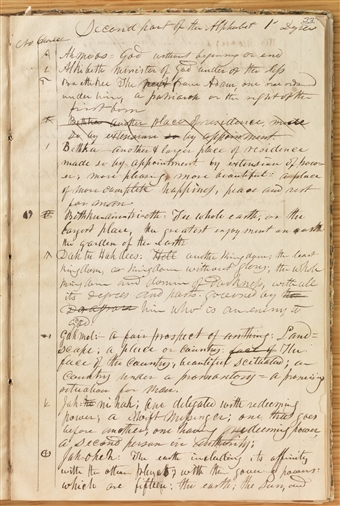 Second part of the Alphabet 1st Degree
God without begining or end
Alkabeth minister of God under or the less
The from Adam, one reserved
under being a patriarch or the right of the
first born
Bethka another place of residence, made
so by extension so by appointment
Bethka another & larger place of residence
made so by appointment by extension of power
more pleasing, more beautiful: a place
of more complete happiness, peace and rest
for man
The whole earth, or the
largest place, the greatest enjoyment on earth
the garden of the earth
Hell another kingdom, the least
kingdom, or kingdom without glory, the whole
kingdom and dominion of darkness, with all
its degrees and parts: governed by the
him who is an enemy to
God
a fair prospect of anything: Land-
scape; a place or country; the
face of the country, beautifully situated; or
country under a promontory = a promising
situation for man
one delegated with redeeming
power; a swift Messenger; one that goes
before another, one having redeeming power,
a second person in authority;
Jah-oh-eh: The earth including its affinity
with the other planets with the governing powers:
which are fifteen: the earth; the Sun, and